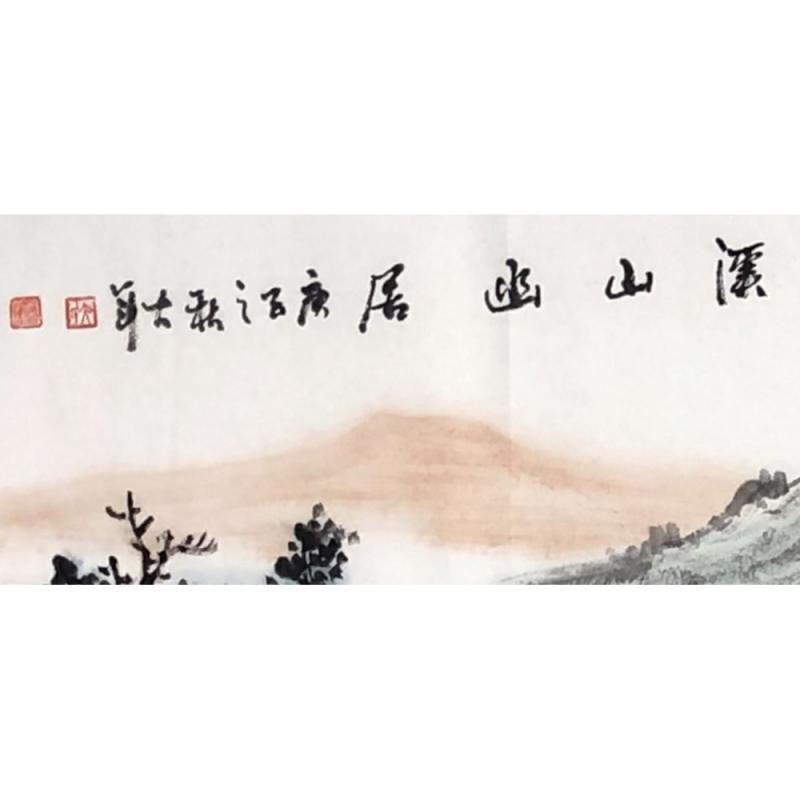 溪山幽居庚子之秋大年